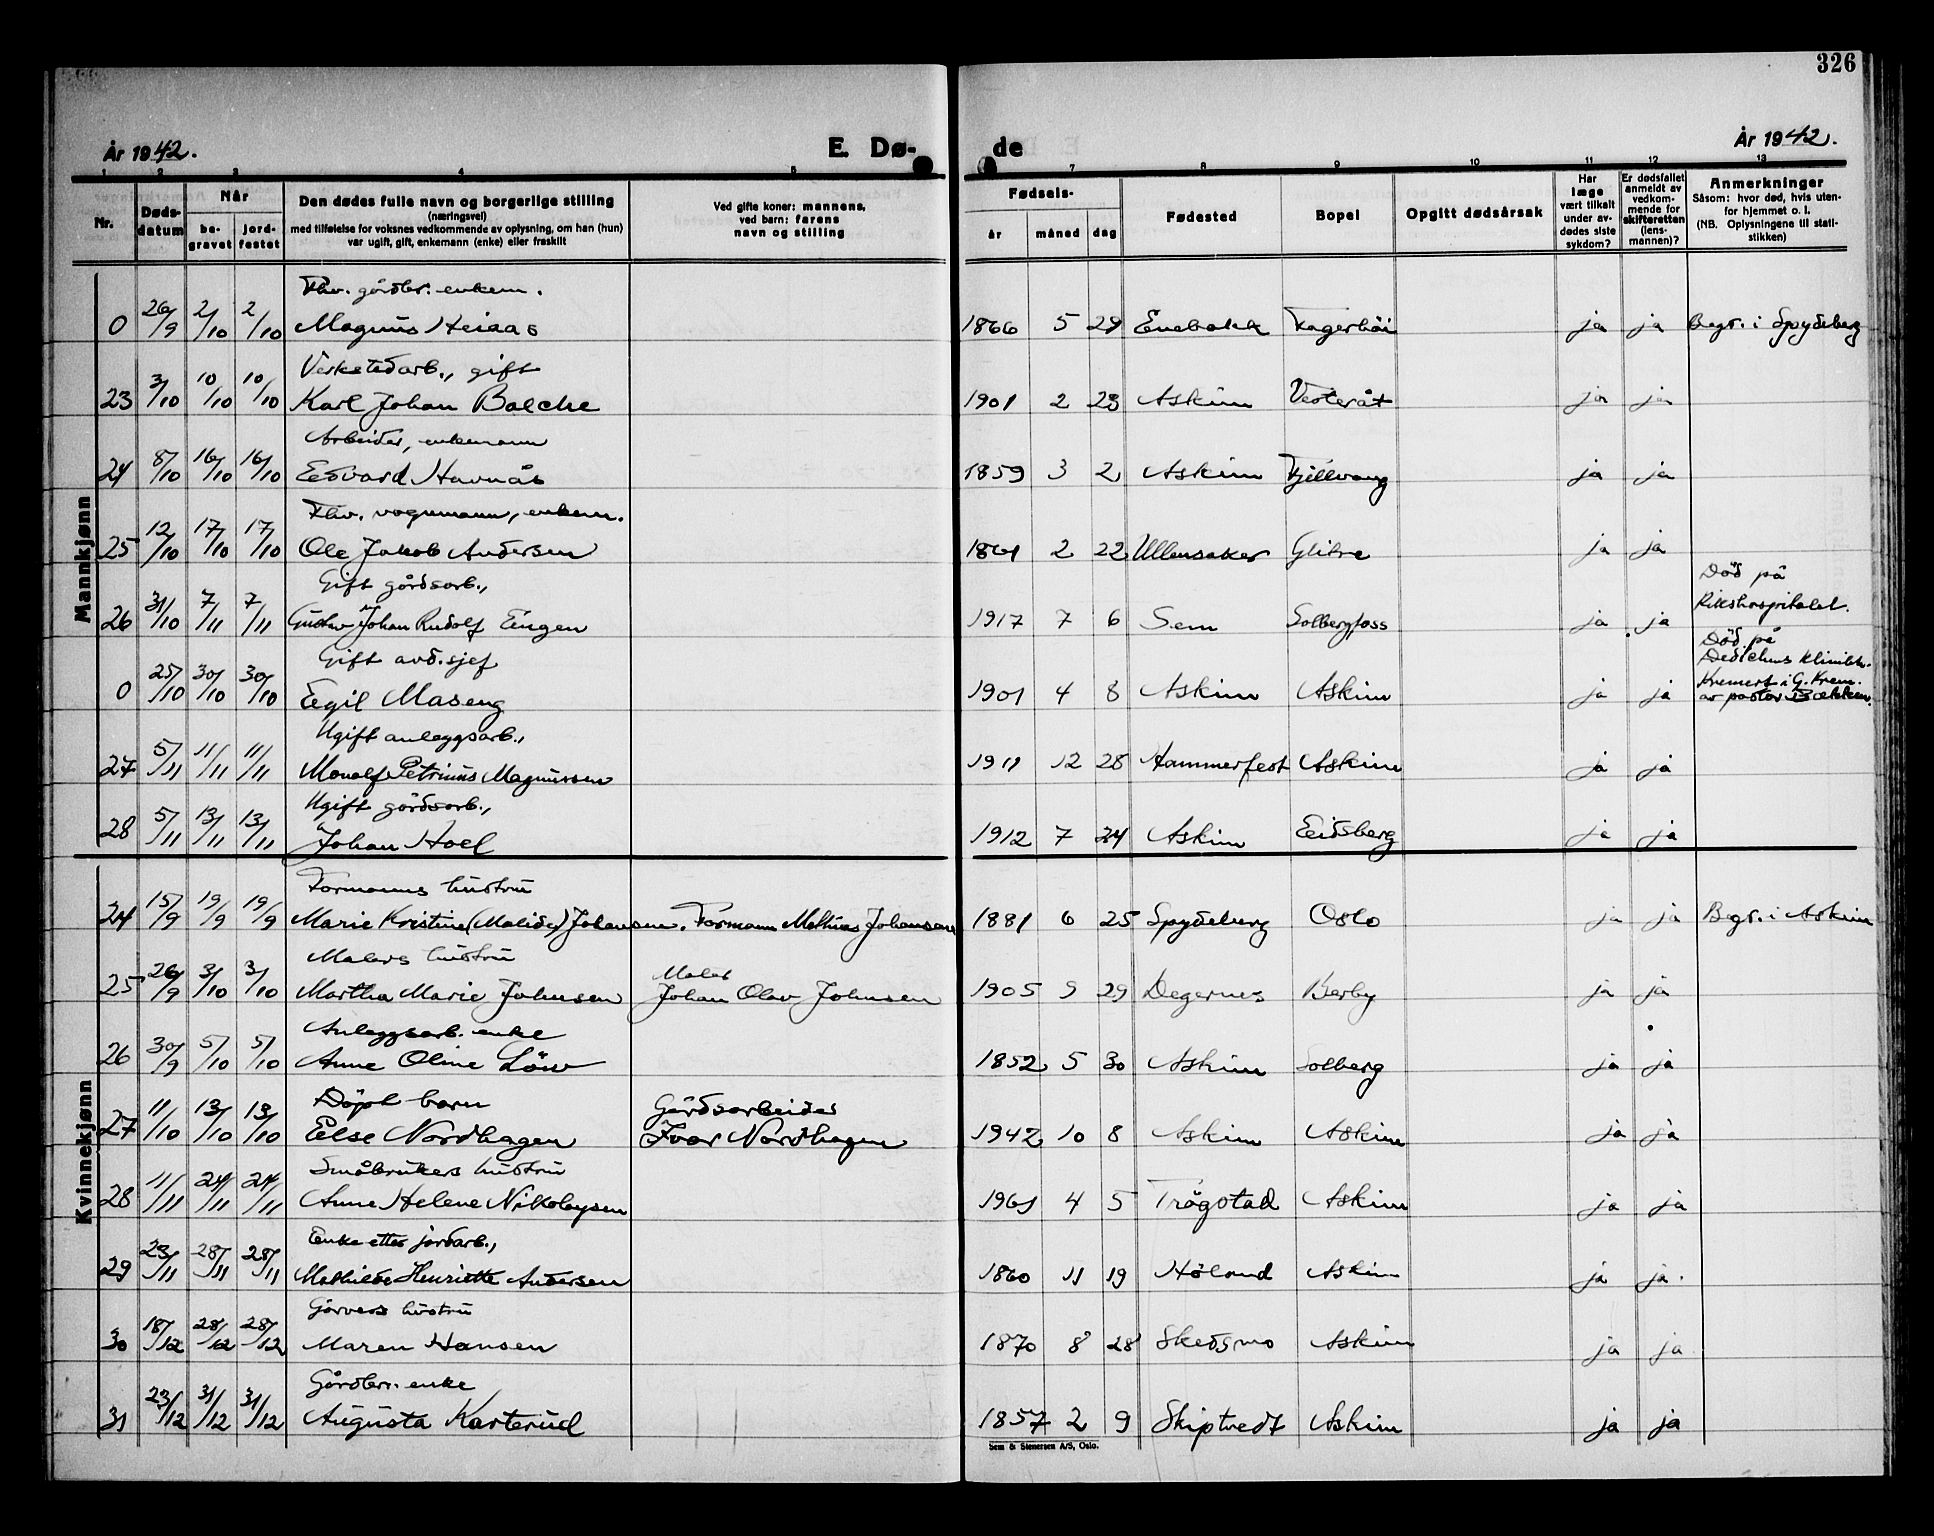 326
År 1942. E. Dø- de År 1942.
1 2 3 4 5 7 8 9 10 11 12 13
Nr. Dødsdatum Når begravet jordfestet
Den dødes fulle navn og borgerlige stilling
(næringsvei)
med tilføielse for voksnes vedkommende av oplysning, om han (hun)
var ugift, gift, enkemann (enke) eller fraskilt
Ved gifte koner: mannens,
ved barn: farens
navn og stilling
Fødsels-
år måned dag
Fødested
Bopel
Opgitt dødsårsak
Har læge vært tilkalt under avdødes siste sykdom?
Er dødsfallet anmeldt av vedkommende for skifteretten (lensmannen)?
Anmerkninger
Såsom: hvor død, hvis utenfor hjemmet o. l.
(NB. Oplysningene til statistikken)
Mannkjønn
Fhv. gårdbr. enkem.
0 26/9 2/10 2/10 Magnus Heiaas 1866 5 29 Enebakk Fagerhöi ja ja Begr. i Spydeberg
Verkstedarb., gift
23 3/10 10/10 10/10 Karl Johan Balche 1901 2 23 Askim Vesteråt ja ja
Arbeider, enkemann
24 8/10 16/10 16/10 Edvard Havnås 1859 3 2 Askim Fjellvang ja ja
Fhv. vognmann, enkem.
25 12/10 17/10 17/10 Ole Jakob Andersen 1861 2 22 Ullensaker Glitre ja ja
Gift gårdsarb.,
26 31/10 7/11 7/11 Gustav Johan Rudolf Eingen 1917 7 6 Sem Solbergfoss ja ja Död på Rikshospitalet.
Gift avd.sjef
0 25/10 30/10 30/10 Egil Maseng 1901 4 8 Askim Askim ja ja Död på Dedichens klinikk. Kremert i G. Krem. av pastor Bækken.
Ugift anleggsarb.,
27 5/11 11/11 11/11 Monolf Petrinus Magnussen 1911 12 28 Hammerfest Askim ja ja
Ugift gårdsarb.,
28 5/11 13/11 13/11 Johan Hoel 1912 7 24 Askim Eidsberg ja ja
Kvinnekjønn
Formanns hustru
24 15/9 19/9 19/9 Marie Kristine (Malider) Johansen. Formann Mathias Johansen 1881 6 25 Spydeberg Oslo ja ja Begr. i Askim
Malers hustru Maler
25 26/9 3/10 3/10 Martha Marie Johnsen Johan Olav Johnsen 1905 9 29 Degernes Berby ja ja
Anleggsarb. enke
26 30/9 5/10 5/10 Anne Oline Löw 1852 5 30 Askim Solberg ja ja
Döpt barn Gårdsarbeider
27 11/10 13/10 13/10 Else Nordhagen Ivar Nordhagen 1942 10 8 Askim Askim ja ja
Småbrukers hustru
28 11/11 24/11 24/11 Anne Helene Nikolaysen 1961 4 5 Trøgstad Askim ja ja
Enke etter jordarb.,
29 23/11 28/11 28/11 Mathilde Henriette Andersen 1860 11 19 Höland Askim ja ja.
Garvers hustru
30 18/12 28/12 28/12 Maren Hansen 1870 8 28 Skedsmo Askim ja ja
Gårdbr. enke
31 23/12 31/12 31/12 Augusta Karterud 1857 2 9 Skiptvedt Askim ja ja
Sem & Stenersen A/S, Oslo.